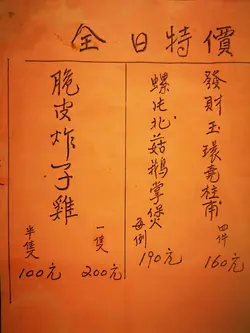 全日特價
發財玉環堯柱甫
四件
160元
螺片北菇鵝掌煲
每例
190元
脆皮炸子雞
一隻
200元
半隻
100元